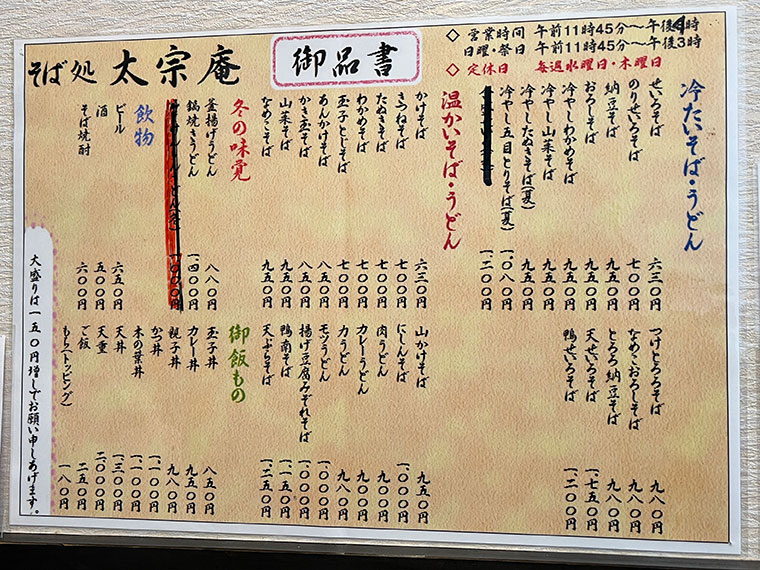 ◇ 営業時間 午前11時45分〜午後4時
日曜・祭日 午前11時45分〜午後3時
◇ 定休日 毎週水曜日・木曜日
御品書
そば処 太宗庵
冷たいそば・うどん
せいろそば 六三〇円
のりせいろそば 七〇〇円
納豆そば 八五〇円
おろしそば 八五〇円
冷やしわかめそば 九五〇円
冷やし山菜そば 九五〇円
冷やしたぬきそば(夏) 九五〇円
冷やし五目とりそば(夏) 一、〇八〇円
一、二〇〇円
つけとろろそば 九八〇円
なめこおろしそば 九八〇円
とろろ納豆そば 九八〇円
天せいろそば 一、七五〇円
鴨せいろそば 一、二〇〇円
温かいそば・うどん
かけそば 六三〇円
きつねそば 七〇〇円
たぬきそば 七〇〇円
わかめそば 七〇〇円
玉子とじそば 七〇〇円
あんかけそば 八五〇円
かき玉そば 八五〇円
山菜そば 九五〇円
なめこそば 九五〇円
山かけそば 九五〇円
にしんそば 一、〇〇〇円
肉うどん 九八〇円
カレーうどん 九八〇円
力うどん 九八〇円
モツうどん 一、〇〇〇円
揚げ豆腐みぞれそば 一、〇〇〇円
鴨南そば 一、一五〇円
天ぷらそば 一、二五〇円
冬の味覚
釜揚げうどん 八八〇円
鍋焼きうどん 一、四〇〇円
一、〇〇〇円
御飯もの
玉子丼 八五〇円
カレー丼 九五〇円
親子丼 九八〇円
かつ丼 一、一〇〇円
木の葉丼 一、一〇〇円
天丼 一、三〇〇円
天重 二、〇〇〇円
ご飯 二五〇円
もち(トッピング) 一八〇円
飲物
ビール 六五〇円
酒 五〇〇円
そば焼酎 六〇〇円
大盛りは一五〇円増しでお願い申しあげます。